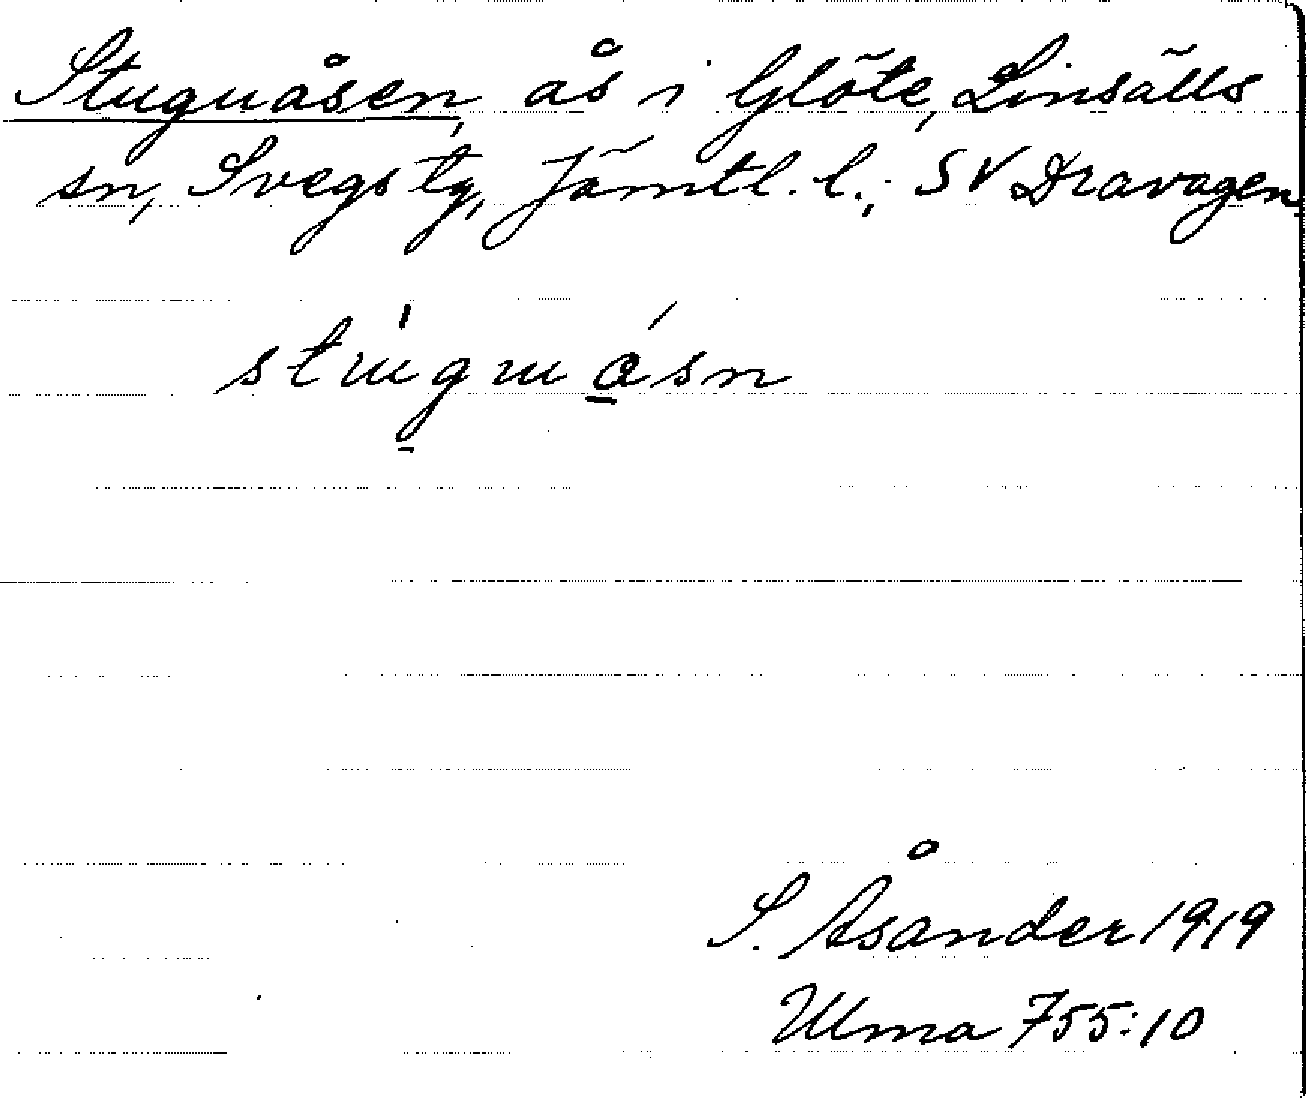 Stuguåsen, ås i Glöte, Linsälls
sn, Svegs tg, Jämtl. l.; SV Dravagen.
stuguåsn
S. Åsander 1919
Ulma 755:10